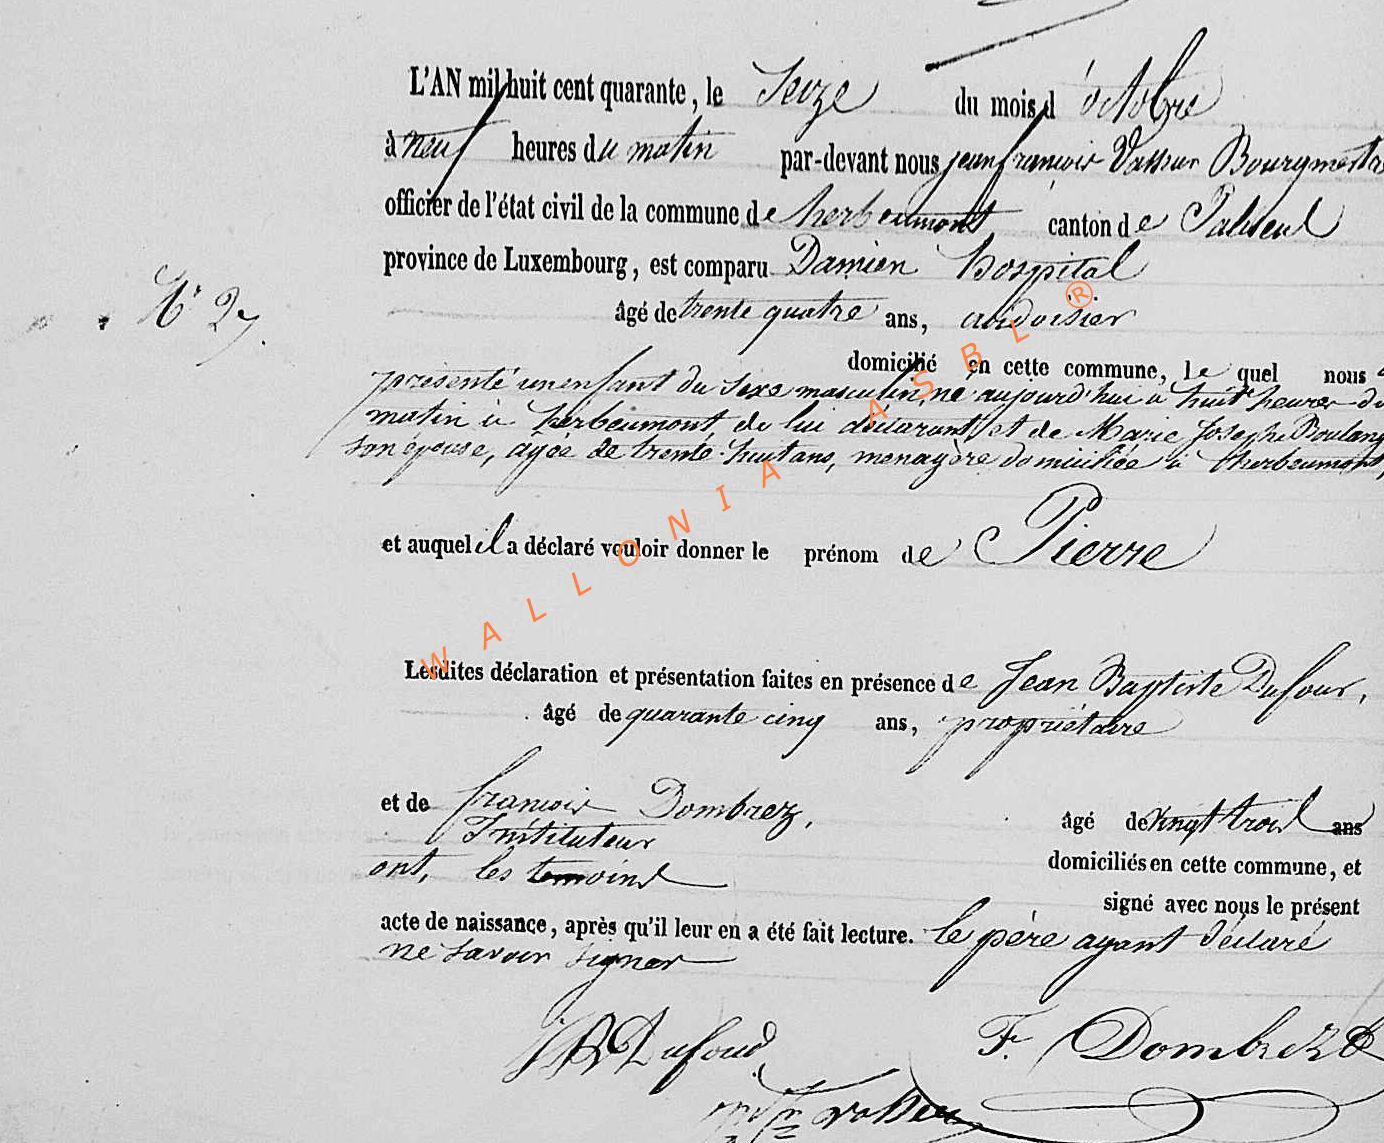 L'AN mil huit cent quarante, le Seize du mois d'octobre
à neuf heures du matin par-devant nous jean françois Vasseur Bourgmestre
officier de l'état civil de la commune de herbeumont canton de Paliseul
province de Luxembourg, est comparu Damien hospital
âgé de trente quatre ans, ardoisier
domicilié en cette commune, lequel nous a
N° 27.
présenté un enfant du sexe masculin, né aujourd'hui à huit heures du
matin à herbeumont de lui déclarant et de Marie Josephe Boulang
son épouse, agée de trente-huit ans, menagère domiciliée à herbeumont,
et auquel il a déclaré vouloir donner le prénom de Pierre
Lesdites déclaration et présentation faites en présence de Jean Baptiste Dufour,
âgé de quarante cinq ans, propriétaire
et de françois Dombrez, âgé de vingt trois ans
Instituteur
domiciliés en cette commune, et
ont, les temoins
signé avec nous le présent
acte de naissance, après qu'il leur en a été fait lecture. le père ayant déclaré
ne savoir signer
JB Dufour
F. Dombrez
Vasseur
WALLONIA ASBL ®